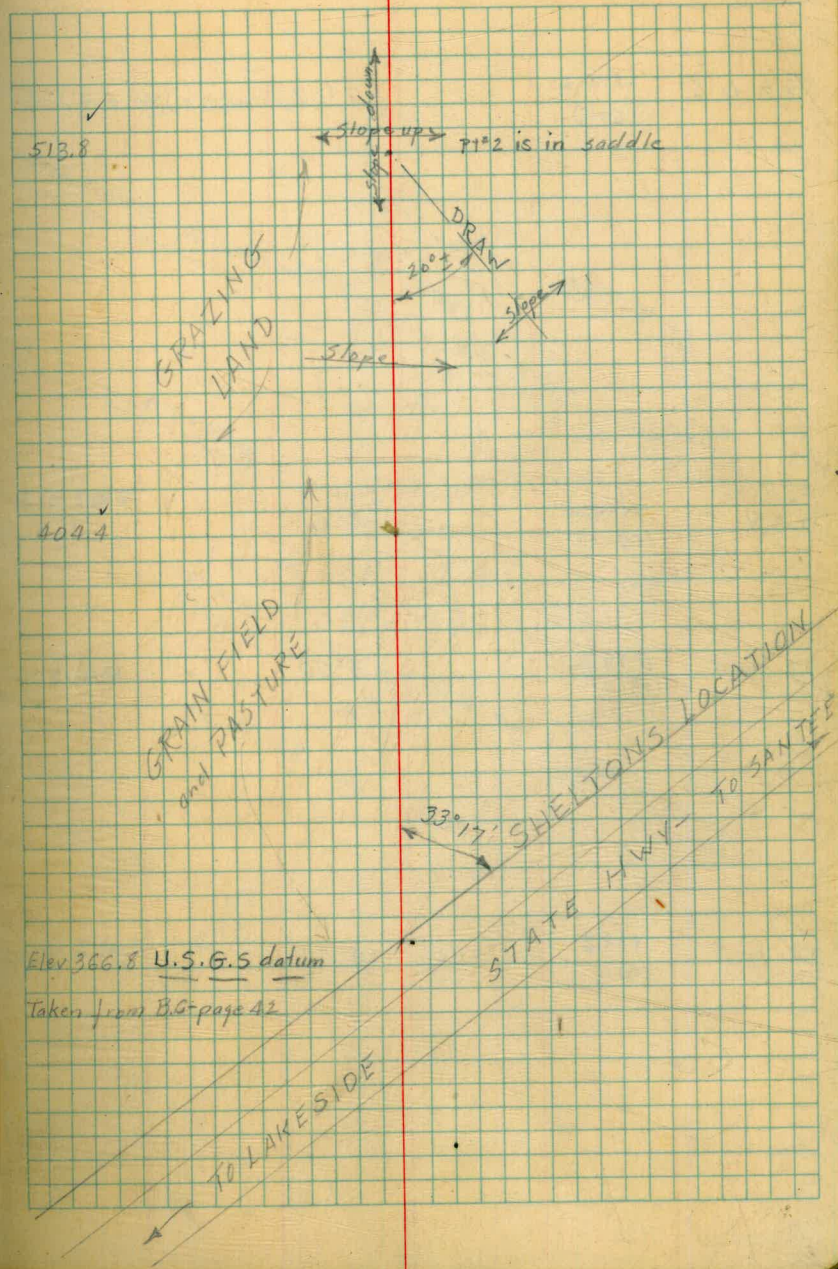 Slope down
513.8
Slope up
Pt#2 is in saddle
DRAW
20°±
Slope
GRAZING
LAND
Slope
404.4
GRAIN FIELD
and PASTURE
SHELTONS LOCATION
33°17'
STATE HWY- TO SANTEE
Elev 366.8 U.S.G.S datum
Taken from B.G-page 42
TO LAKESIDE